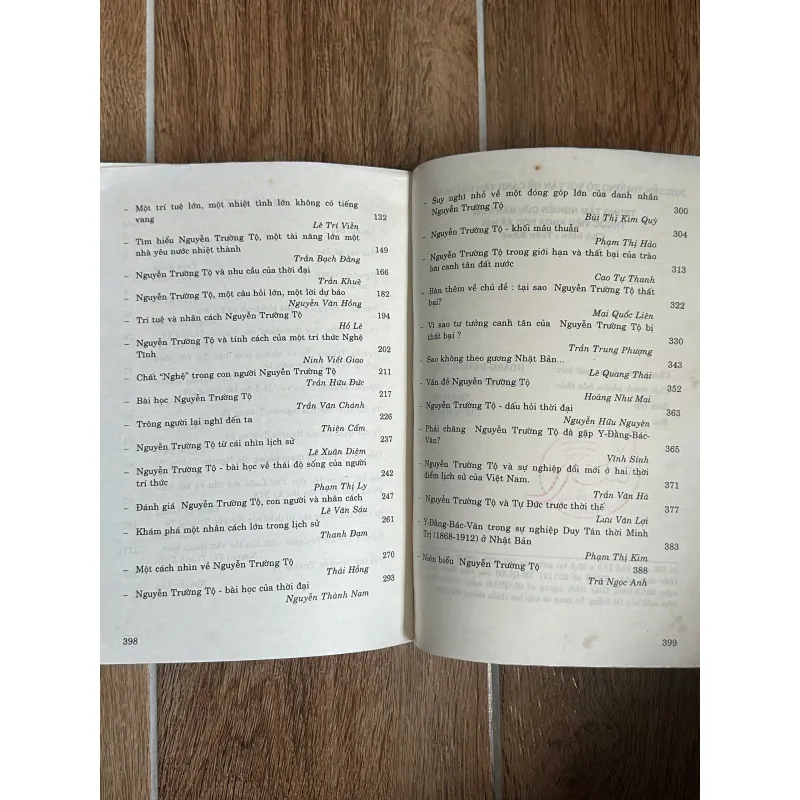 – Một trí tuệ lớn, một nhiệt tình lớn không có tiếng
vang 132
Lê Trí Viễn
– Tìm hiểu Nguyễn Trường Tộ, một tài năng lớn một
nhà yêu nước nhiệt thành 149
Trần Bạch Đằng
– Nguyễn Trường Tộ và nhu cầu của thời đại 166
Trần Khuê
– Nguyễn Trường Tộ, một câu hỏi lớn, một lời dự báo 182
Nguyễn Văn Hồng
– Trí tuệ và nhân cách Nguyễn Trường Tộ 194
Hồ Lê
– Nguyễn Trường Tộ và tính cách của một trí thức Nghệ
Tĩnh 202
Ninh Viết Giao
– Chất "Nghệ" trong con người Nguyễn Trường Tộ 211
Trần Hữu Đức
– Bài học Nguyễn Trường Tộ 217
Trần Văn Chánh
– Trông người lại nghĩ đến ta 226
Thiện Cẩm
– Nguyễn Trường Tộ từ cái nhìn lịch sử 237
Lê Xuân Diệm
– Nguyễn Trường Tộ - bài học về thái độ sống của người
trí thức 242
Phạm Thị Ly
– Đánh giá Nguyễn Trường Tộ, con người và nhân cách 247
Lê Văn Sáu
– Khám phá một nhân cách lớn trong lịch sử 261
Thanh Đạm
– Một cách nhìn về Nguyễn Trường Tộ 270
Thái Hồng
– Nguyễn Trường Tộ - bài học của thời đại 293
Nguyễn Thành Nam
398
- Suy nghĩ nhỏ về một đóng góp lớn của danh nhân
Nguyễn Trường Tộ 300
Bùi Thị Kim Quỳ
- Nguyễn Trường Tộ - khối mâu thuẫn 304
Phạm Thị Hảo
- Nguyễn Trường Tộ trong giới hạn và thất bại của trào
lưu canh tân đất nước 313
Cao Tự Thanh
- Bàn thêm về chủ đề : tại sao Nguyễn Trường Tộ thất
bại? 322
Mai Quốc Liên
- Vì sao tư tưởng canh tân của Nguyễn Trường Tộ bị
thất bại ? 330
Trần Trung Phượng
- Sao không theo gương Nhật Bản... 343
Lê Quang Thái
- Vấn đề Nguyễn Trường Tộ 352
Hoàng Như Mai
- Nguyễn Trường Tộ - dấu hỏi thời đại 363
Nguyễn Hữu Nguyên
- Phải chăng Nguyễn Trường Tộ đã gặp Y-Đằng-Bác-
Văn? 365
Vĩnh Sính
- Nguyễn Trường Tộ và sự nghiệp đổi mới ở hai thời
điểm lịch sử của Việt Nam. 371
Trần Văn Hà
- Nguyễn Trường Tộ và Tự Đức trước thời thế 377
Lưu Văn Lợi
- Y-Đằng-Bác-Văn trong sự nghiệp Duy Tân thời Minh
Trị (1868-1912) ở Nhật Bản 383
Phạm Thị Kim
- Niên biểu Nguyễn Trường Tộ 388
Trà Ngọc Anh
399